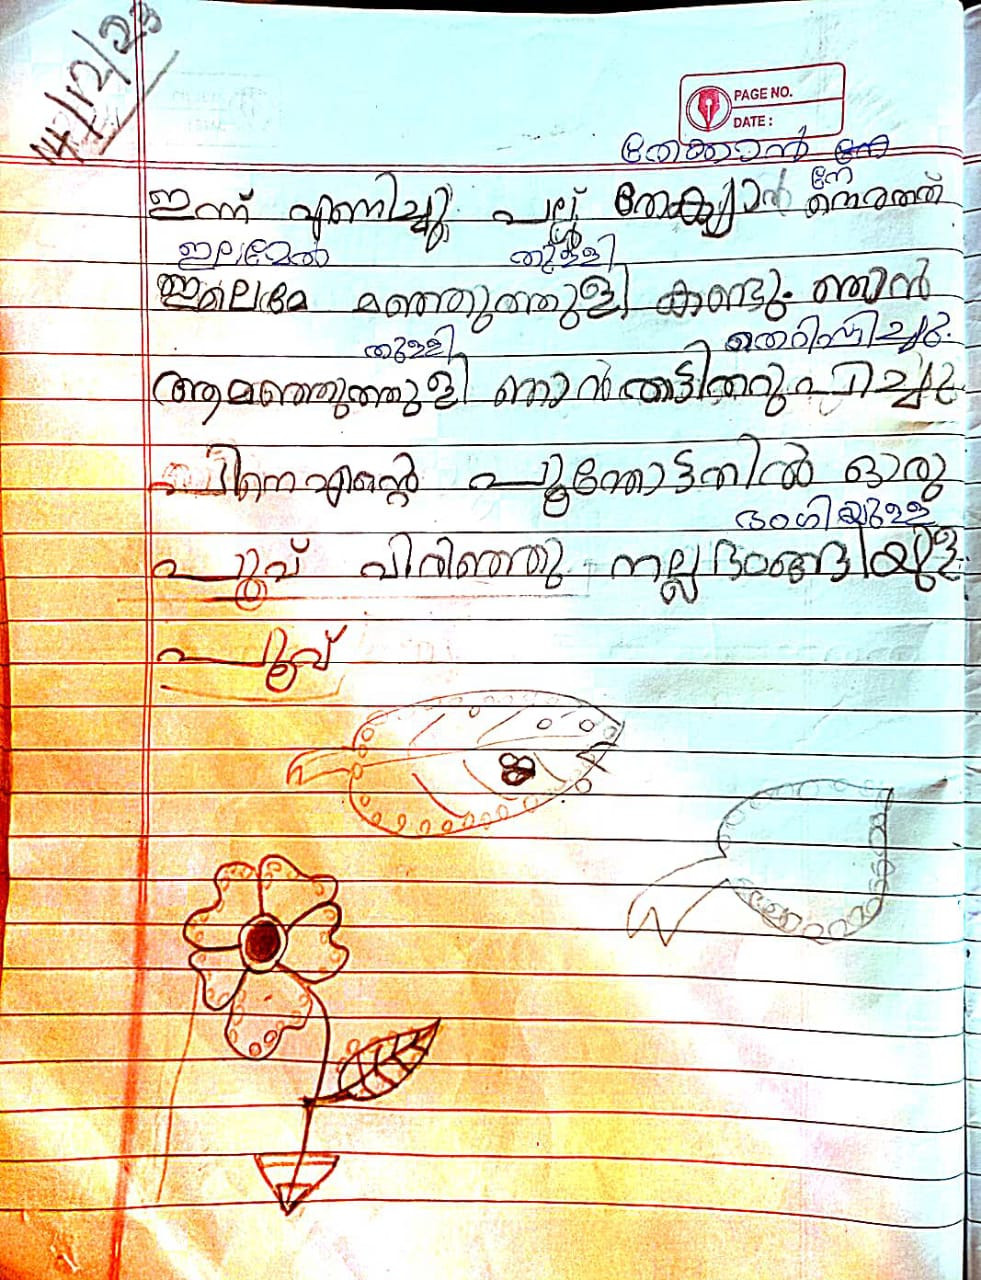 14/12/23
PAGE NO.
DATE :
തേക്കാൻ നേ
നേ
ഇന്ന് എണിച്ചു പല്ല് തേക്യാൻ നെരത്ത്
ഇലമേൽ തുള്ളി
ഇലെമേ മഞ്ഞുത്തുളി കണ്ടു. ഞാൻ
തുള്ളി തെറിപ്പിച്ചു.
ആമഞ്ഞുത്തുളി ഞാൻതട്ടിതറുപിച്ചു
പിനെഎന്റെ പൂന്തോട്ടതിൽ ഒരു
ഭംഗിയുള്ള
പൂവ് വിരിഞ്ഞു നല്ല ഭംങ്ങിയുള
പൂവ്